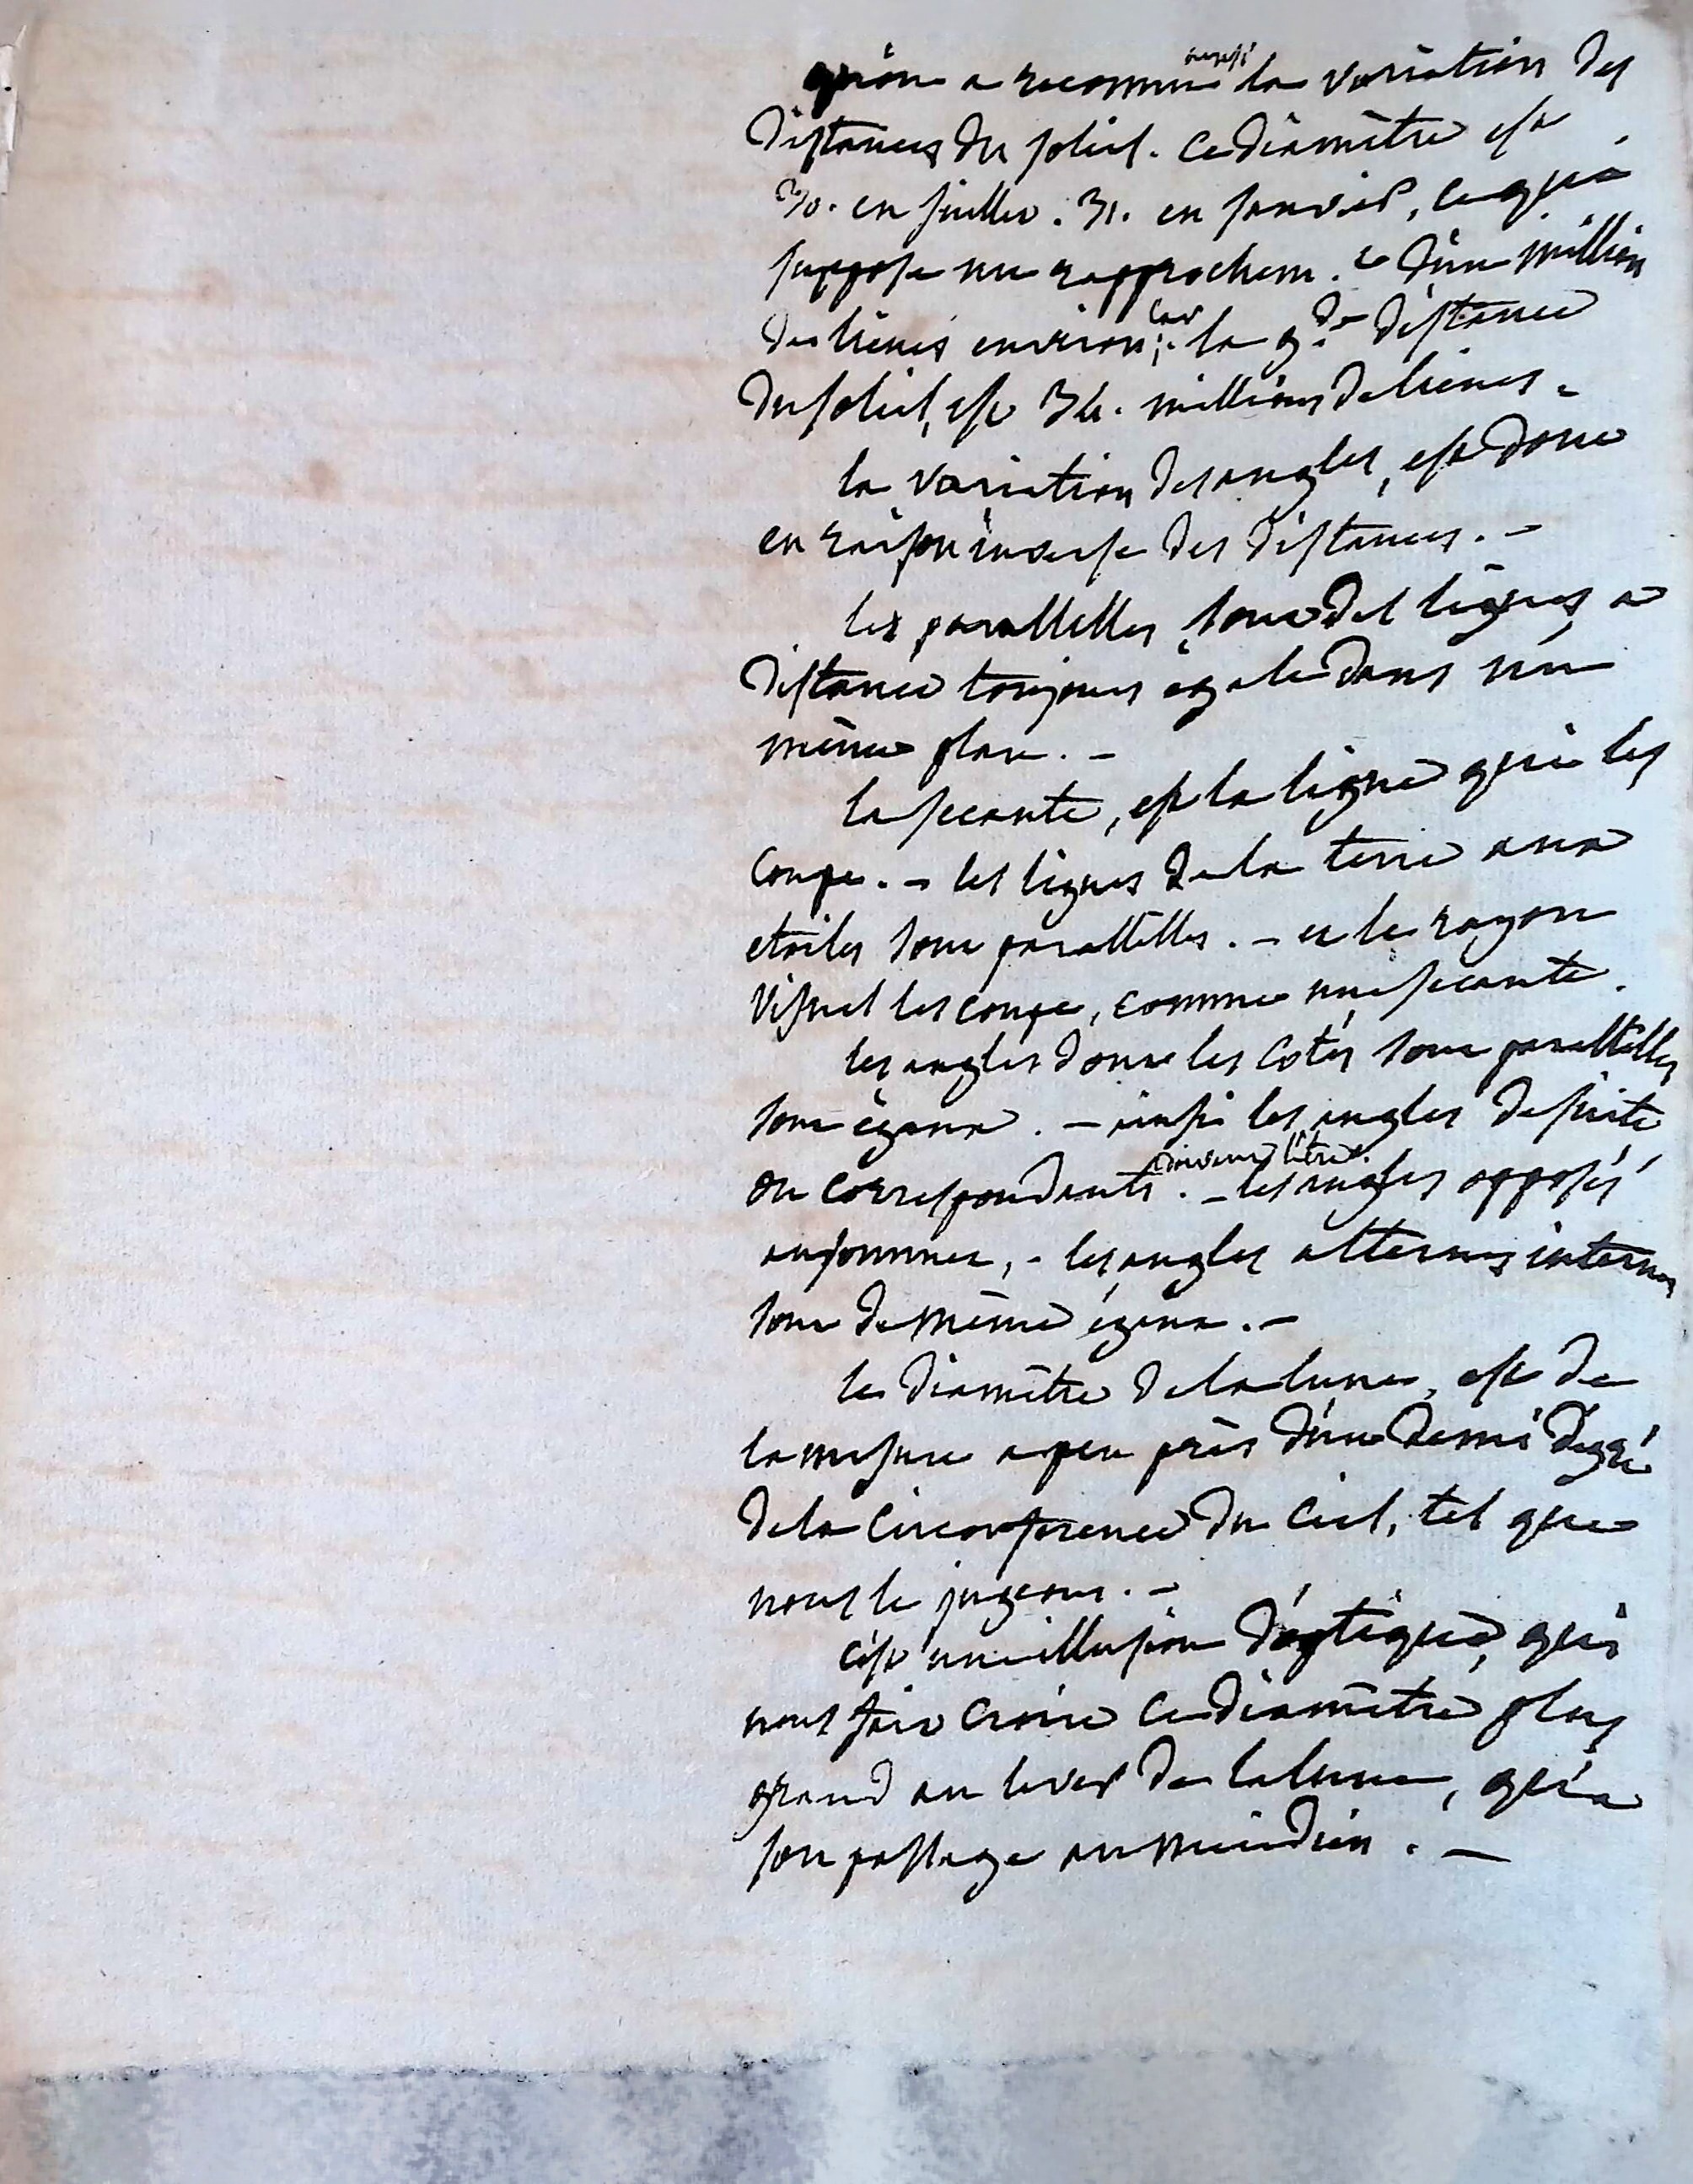 qu'on a reconnu aussi la variation des
distances du soleil. ce diamêtre est
30. en juillet. 31. en janvier, ce qui
suppose un rapprochem.t d'un million
de lieues environ; car la g.de distance
du soleil, est 34. millions de lieues.
la variation des angles, est donc
en raison inverse des distances. -
les parallelles, sont des lignes a
distance toujours égale dans un
même plan. -
la secante, est la ligne qui les
coupe. - les lignes de la terre aux
etoiles sont parallelles. - et le rayon
visuel les coupe, comme une secante.
les angles dont les cotés sont parallelles
sont égaux. - ainsi les angles de suite
ou correspondants doivent l'être. - les angles opposés
au sommet, - les angles alternes internes
sont de même égaux. -
le diamêtre de la lune, est de
la mesure a peu près d'un demi dégré
de la circonference du ciel, tel que
nous le jugeons. -
c'est une illusion d'optique, qui
nous fait croire ce diamêtre plus
grand au lever de la lune, qu'a
son passage au meridien. -